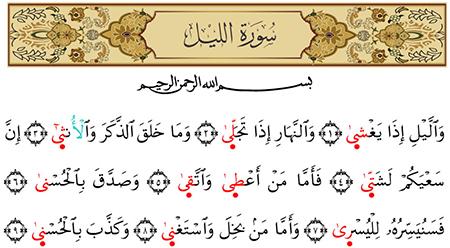 سُورَةُ اللَّيْل
بسم الله الرحمن الرحيم
وَٱلَّيْلِ إِذَا يَغْشَىٰ ﴿١﴾ وَٱلنَّهَارِ إِذَا تَجَلَّىٰ ﴿٢﴾ وَمَا خَلَقَ ٱلذَّكَرَ وَٱلْأُنثَىٰٓ ﴿٣﴾ إِنَّ
سَعْيَكُمْ لَشَتَّىٰ ﴿٤﴾ فَأَمَّا مَنْ أَعْطَىٰ وَٱتَّقَىٰ ﴿٥﴾ وَصَدَّقَ بِٱلْحُسْنَىٰ ﴿٦﴾
فَسَنُيَسِّرُهُۥ لِلْيُسْرَىٰ ﴿٧﴾ وَأَمَّا مَنۢ بَخِلَ وَٱسْتَغْنَىٰ ﴿٨﴾ وَكَذَّبَ بِٱلْحُسْنَىٰ ﴿٩﴾